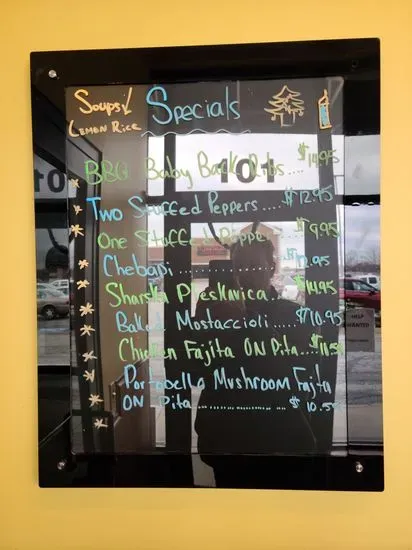 Soups! Specials
Lemon Rice
BBQ Baby Back Ribs... $14.95
Two Stuffed Peppers.... $12.95
One Stuffed Peppe $9.95
Chebapi ..............
Sharska Pleskavica.... $14.95
Baked Mostaccioli..... $10.95
Chicken Fajita ON Pita...
Portobello Mushroom Fajita
ON Pita ................ $10.55
101
HELP
WANTED